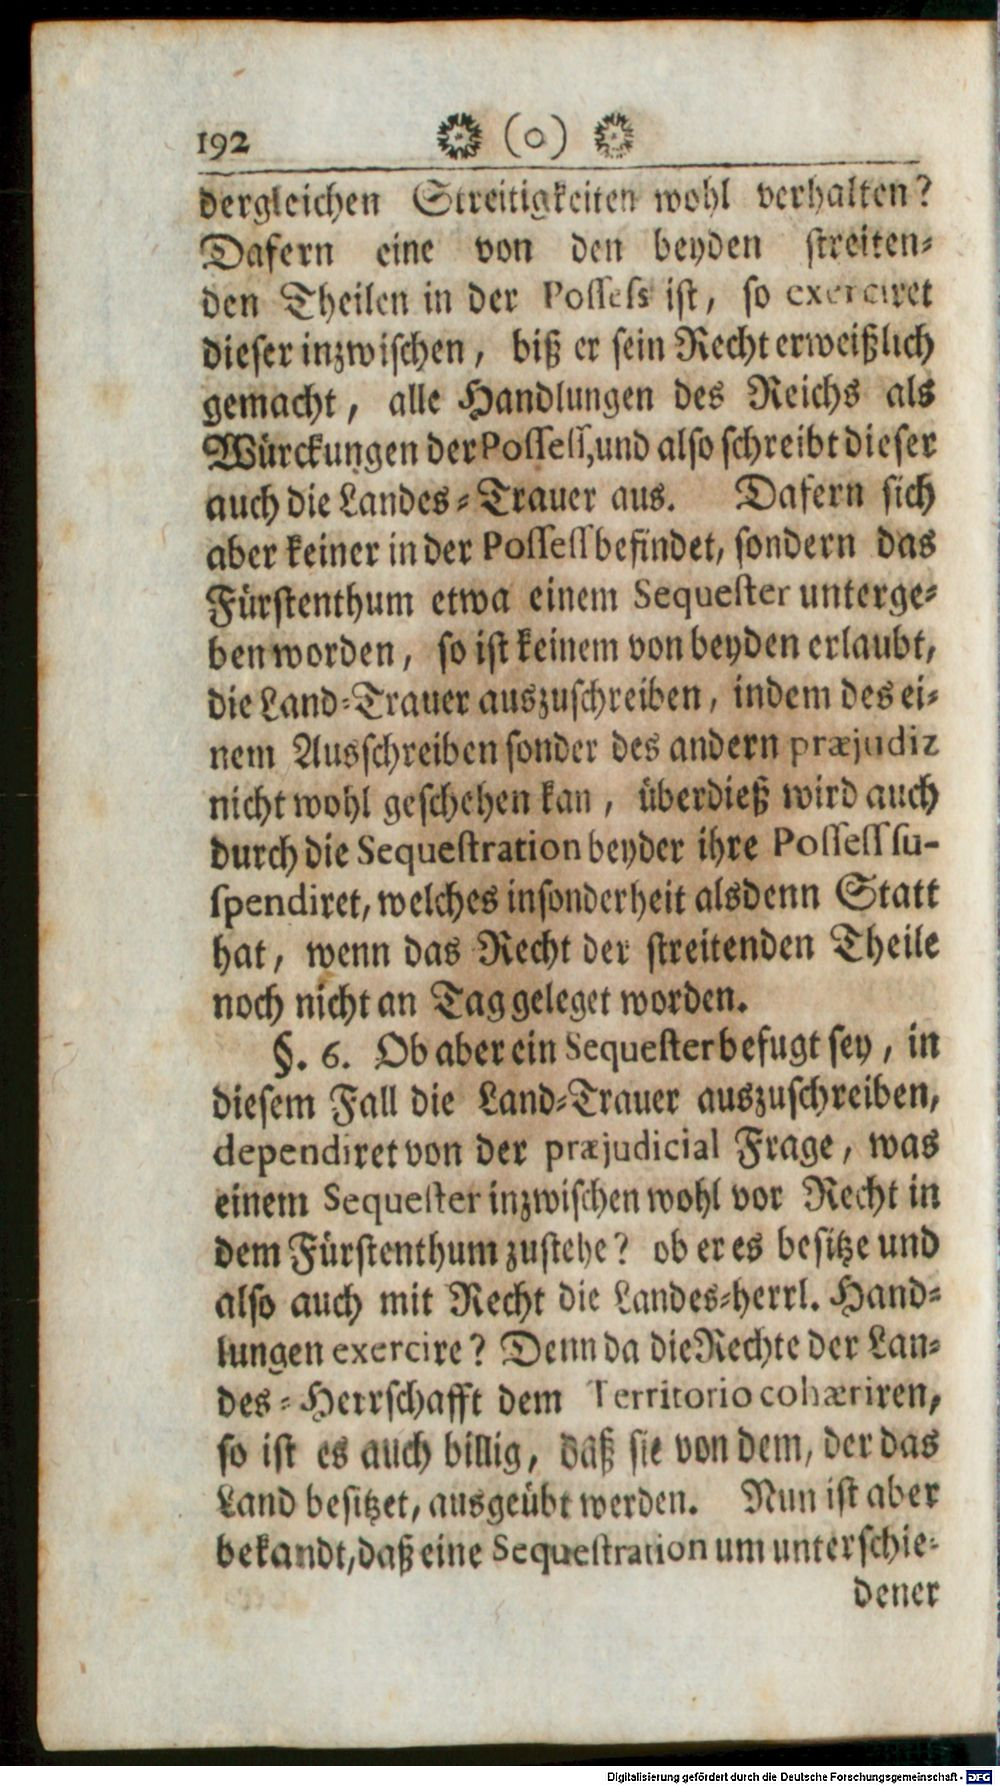 192 (o)
dergleichen Streitigkeiten wohl verhalten?
Dafern eine von den beyden streiten-
den Theilen in der Possess ist, so exerciret
dieser inzwischen, biß er sein Recht erweißlich
gemacht, alle Handlungen des Reichs als
Würckungen der Possess, und also schreibt dieser
auch die Landes-Trauer aus. Dafern sich
aber keiner in der Possess befindet, sondern das
Fürstenthum etwa einem Sequester unterge-
ben worden, so ist keinem von beyden erlaubt,
die Land-Trauer auszuschreiben, indem des ei-
nem Ausschreiben sonder des andern præjudiz
nicht wohl geschehen kan, überdieß wird auch
durch die Sequestration beyder ihre Possess su-
spendiret, welches insonderheit alsdenn Statt
hat, wenn das Recht der streitenden Theile
noch nicht an Tag geleget worden.
§. 6. Ob aber ein Sequester befugt sey, in
diesem Fall die Land-Trauer auszuschreiben,
dependiret von der præjudicial Frage, was
einem Sequester inzwischen wohl vor Recht in
dem Fürstenthum zustehe? ob er es besitze und
also auch mit Recht die Landes-herrl. Hand-
lungen exercire? Denn da die Rechte der Lan-
des-Herrschafft dem Territorio cohæriren,
so ist es auch billig, daß sie von dem, der das
Land besitzet, ausgeübt werden. Nun ist aber
bekandt, daß eine Sequestration um unterschie-
dener
Digitalisierung gefördert durch die Deutsche Forschungsgemeinschaft - DFG